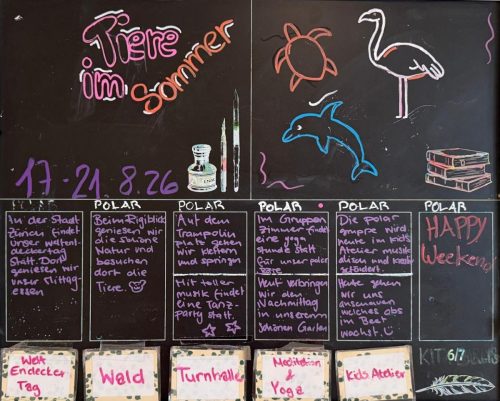 Tiere
im Sommer
17-21.8.26
POLAR
In der Stadt
Zürich findet
unser weltent-
deckertag
Statt. Dort
geniesen wir
unser Mittag-
essen
POLAR
Beim Rigiblick
geniesen wir
die schöne
Natur und
besuchen
dort die
Tiere.
POLAR
Auf dem
Trampolin
platz gehen
wir klettern
und springen
Mit toller
musik findet
eine Tanz-
party statt.
POLAR
Im Gruppen
Zimmer findet
eine yoga
Stunde statt
für unser polar
Heut verbringen
wir den
Nachmittag
in unserem
schönen Garten
POLAR
Die polar
gruppe wird
heute im kids
Atelier musik
alisch und kreativ
gefördert.
Heute gehen
wir uns
anschauen
welches obs
im Beet
wächst.
POLAR
HAPPY
Weekend
KIT 6/7
Welt
Endecker
Tag
Wald
Turnhalle
Meditation
&
Yoga
Kids Atelier